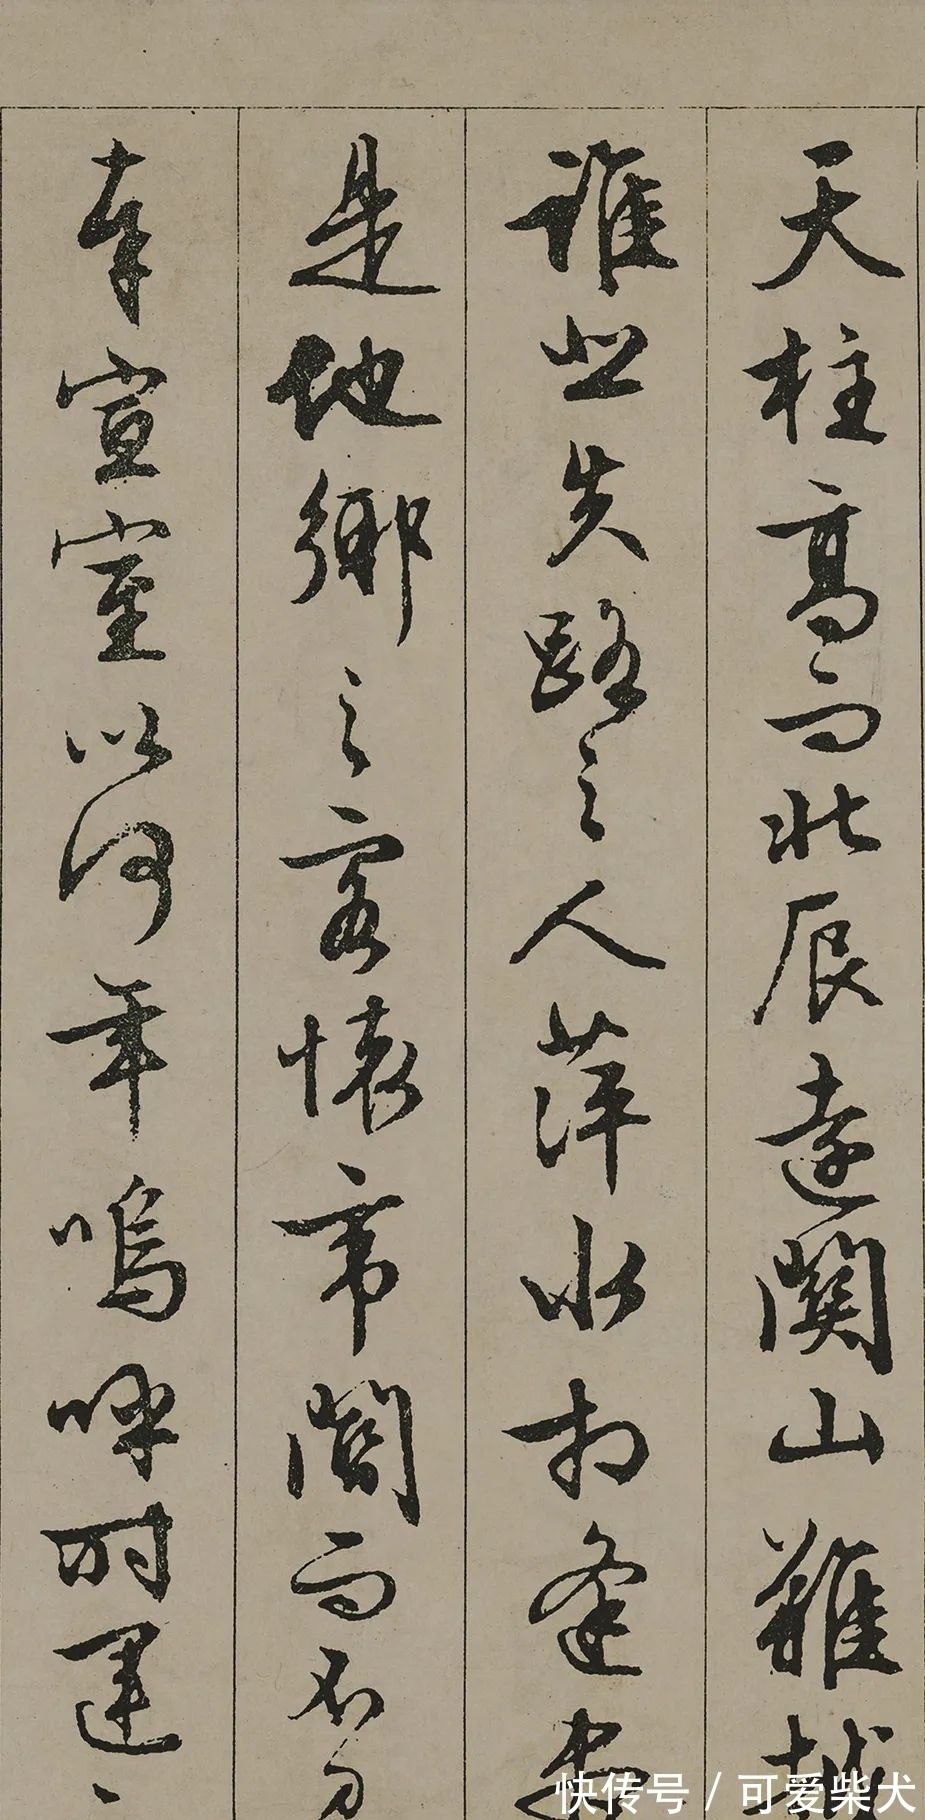 天柱高而北辰遠關山難越
誰悲失路之人萍水相逢盡
是他鄉之客懷帝閽而不
奉宣室以何年嗚呼時運
快传号 / 可爱柴犬